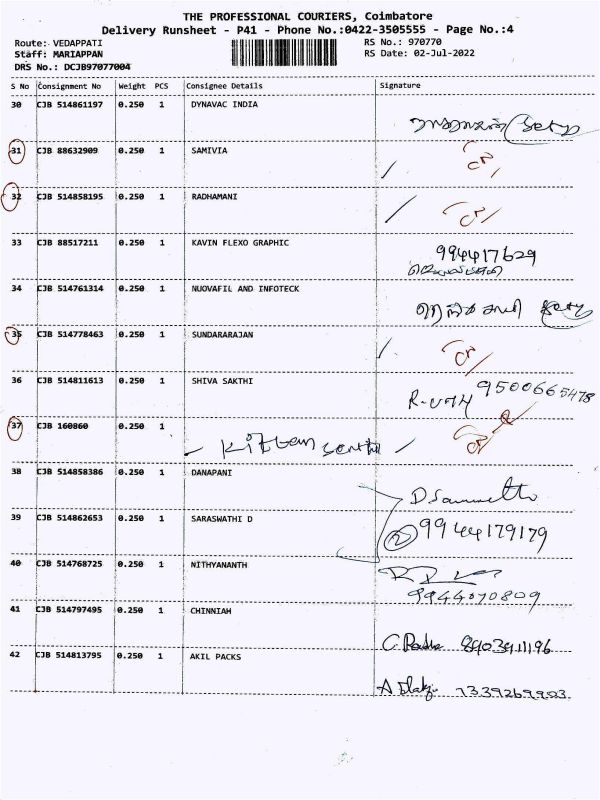 THE PROFESSIONAL COURIERS, Coimbatore
Delivery Runsheet - P41 - Phone No.:0422-3505555 - Page No.:4
Route: VEDAPPATI RS No.: 970770
Staff: MARIAPPAN RS Date: 02-Jul-2022
DRS No.: DCJB97077004
S No Consignment No Weight PCS Consignee Details Signature
30 CJB 514861197 0.250 1 DYNAVAC INDIA
31 CJB 88632909 0.250 1 SAMIVIA
32 CJB 514858195 0.250 1 RADHAMANI
33 CJB 88517211 0.250 1 KAVIN FLEXO GRAPHIC 994417629
34 CJB 514761314 0.250 1 NUOVAFIL AND INFOTECK
35 CJB 514778463 0.250 1 SUNDARARAJAN
36 CJB 514811613 0.250 1 SHIVA SAKTHI 9500665478
37 CJB 160860 0.250 1
38 CJB 514858386 0.250 1 DANAPANI
39 CJB 514862653 0.250 1 SARASWATHI D 2 9944179179
40 CJB 514768725 0.250 1 NITHYANANTH
9944070809
41 CJB 514797495 0.250 1 CHINNIAH
8903911196
42 CJB 514813795 0.250 1 AKIL PACKS
7339269903